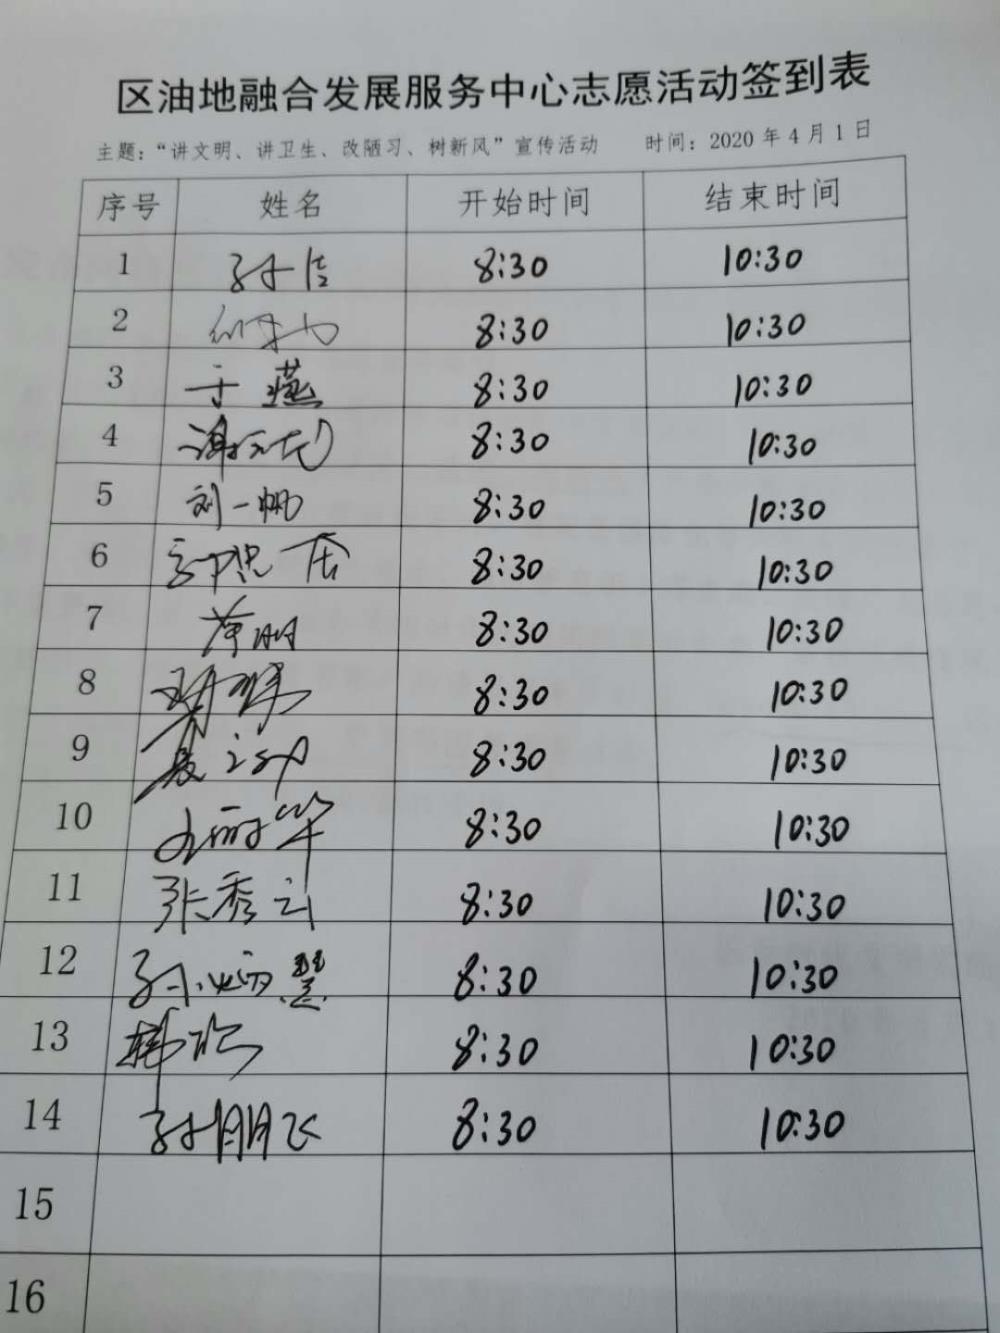 区油地融合发展服务中心志愿活动签到表
主题：“讲文明、讲卫生、改陋习、树新风”宣传活动 时间：2020年4月1日
序号 姓名 开始时间 结束时间
1 孙洁 8:30 10:30
2 8:30 10:30
3 于燕 8:30 10:30
4 8:30 10:30
5 刘一帆 8:30 10:30
6 8:30 10:30
7 8:30 10:30
8 8:30 10:30
9 8:30 10:30
10 8:30 10:30
11 张秀云 8:30 10:30
12 8:30 10:30
13 8:30 10:30
14 孙朋飞 8:30 10:30
15
16